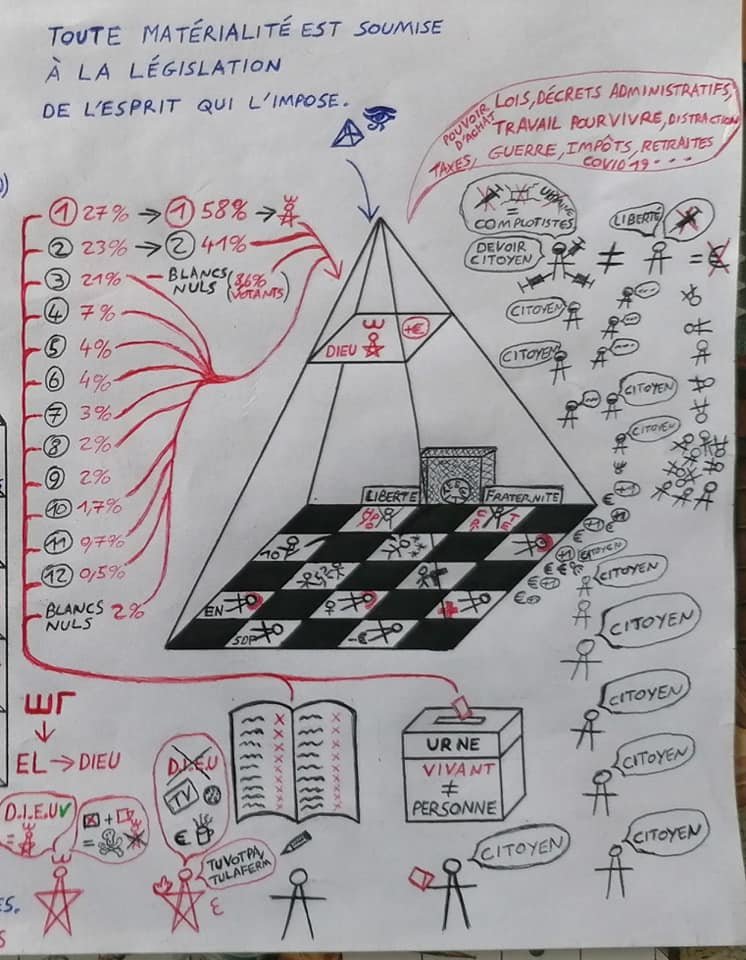 TOUTE MATÉRIALITÉ EST SOUMISE
À LA LÉGISLATION
DE L'ESPRIT QUI L'IMPOSE.
POUVOIR D'ACHAT
LOIS, DÉCRETS ADMINISTRATIFS,
TRAVAIL POUR VIVRE, DISTRACTION
TAXES, GUERRE, IMPÔTS, RETRAITES
COVID19...
=
COMPLOTISTES
LIBERTÉ
DEVOIR
CITOYEN
≠
= €
CITOYEN
CITOYEN
CITOYEN
CITOYEN
1 27% → 1 58% →
2 23% → 2 41%
3 21%
BLANCS
NULS
(86%
VOTANTS)
4 7%
5 4%
6 4%
7 3%
8 2%
9 2%
10 1,7%
11 0,7%
12 0,5%
BLANCS
NULS 2%
DIEU
+€
LIBERTÉ
FRATERNITÉ
EN
SDF
-€
CITOYEN
CITOYEN
CITOYEN
CITOYEN
CITOYEN
CITOYEN
CITOYEN
EL → DIEU
D.I.E.U
=
D.I.E.U
TV
€
TUVOTPA
TULAFERM
URNE
VIVANT
≠
PERSONNE
CITOYEN
ES.
S